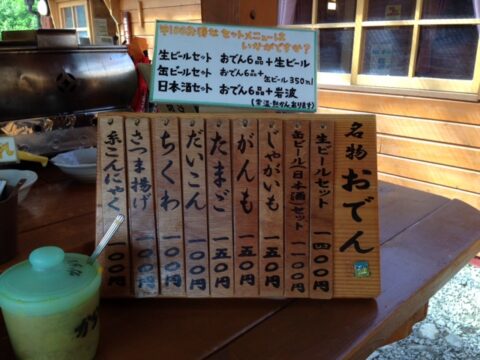 セットメニューは
いかがですか?
生ビールセット おでん6品+生ビール
缶ビールセット おでん6品+缶ビール350ml
日本酒セット おでん6品+岩波
(常温・熱かんあります)
名物 おでん
生ビールセット 一四〇〇円
缶ビール/日本酒セット 一一〇〇円
じゃがいも 一五〇円
がんも 一五〇円
たまご 一五〇円
だいこん 一〇〇円
ちくわ 一〇〇円
さつま揚げ 一〇〇円
糸こんにゃく 一〇〇円